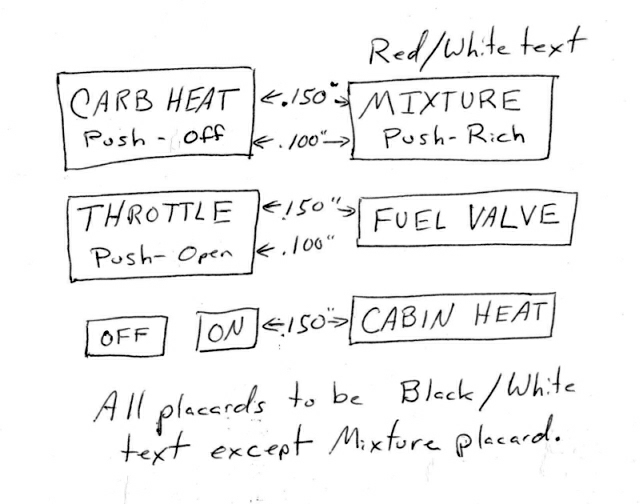 Red/White text
CARB HEAT .150" MIXTURE
Push - Off .100" Push-Rich
THROTTLE .150" FUEL VALVE
Push-Open .100"
OFF ON .150" CABIN HEAT
All placards to be Black/White
text except Mixture placard.